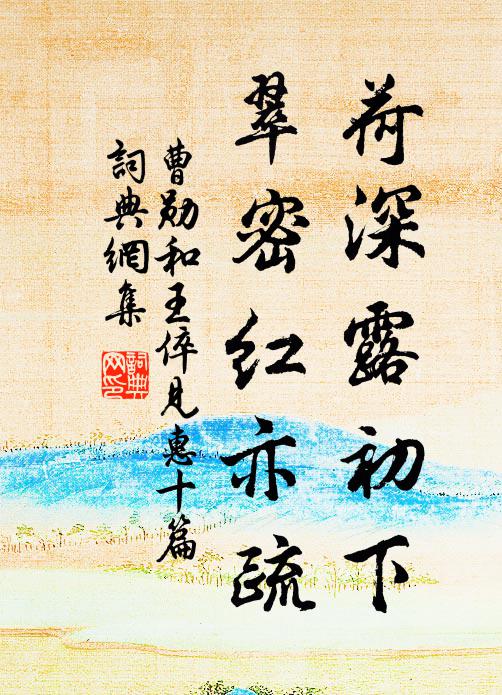 荷深露初下
翠密红亦疏
曹勋和王倅见惠十篇
詞典網集
詞典网印